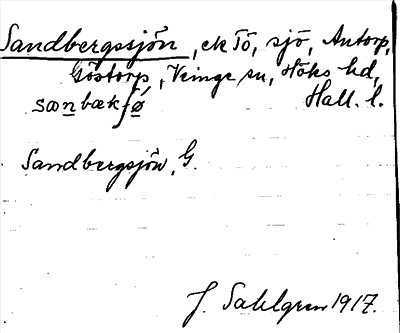 Sandbergssjön, ek Tö, sjö, Antorp,
Göstorp, Veinge sn, Höks hd,
Hall. l.
Sandbergsjön, G.
J. Sahlgren 1917.